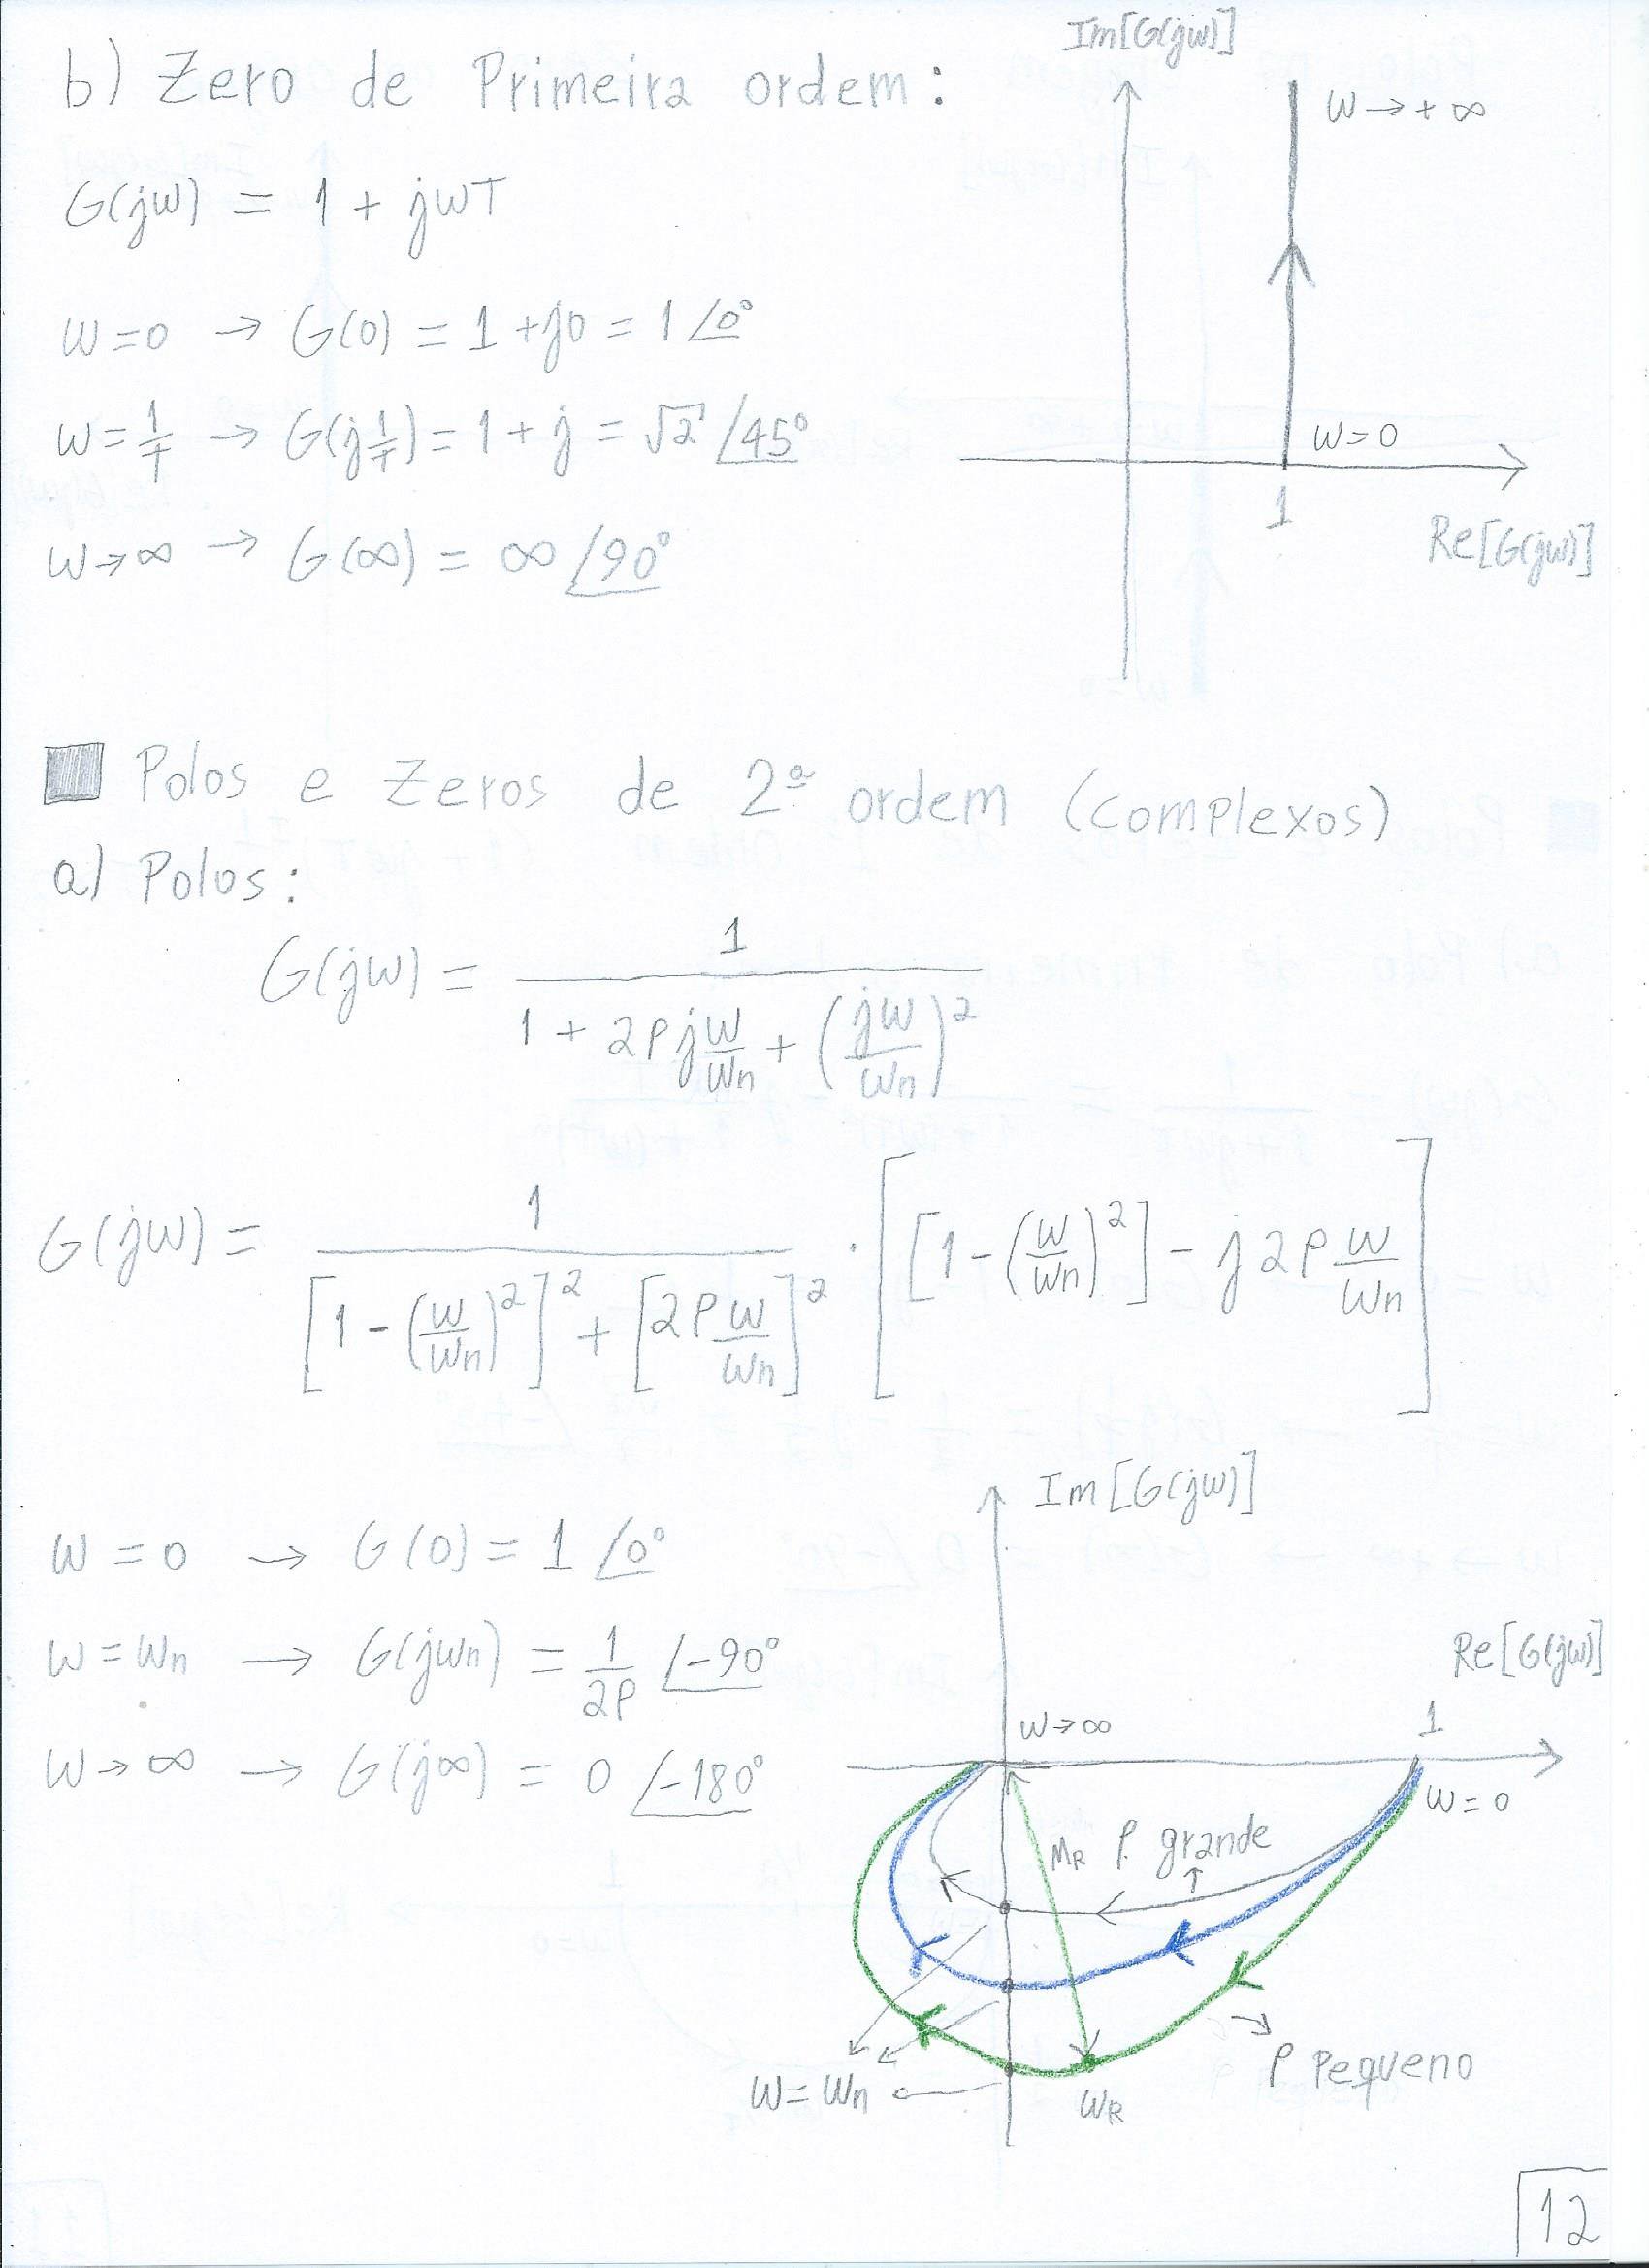 b) Zero de Primeira ordem:
G(jω) = 1 + jωT
ω=0 → G(0) = 1 + j0 = 1 ∠0°
ω = 1/T → G(j 1/T) = 1 + j = √2 ∠45°
ω→∞ → G(∞) = ∞ ∠90°
Im[G(jω)]
ω→+∞
ω=0
1
Re[G(jω)]
Polos e Zeros de 2ª ordem (complexos)
a) Polos:
G(jω) = 1 / (1 + 2ρj ω/ωn + (jω/ωn)²)
G(jω) = 1 / ([1 - (ω/ωn)²]² + [2ρ ω/ωn]²) · [[1 - (ω/ωn)²] - j2ρ ω/ωn]
ω = 0 → G(0) = 1 ∠0°
ω = ωn → G(jωn) = 1/2ρ ∠-90°
ω→∞ → G(j∞) = 0 ∠-180°
Im[G(jω)]
Re[G(jω)]
ω→∞
1
ω=0
MR
ρ grande
ρ pequeno
ω=ωn
ωR
12